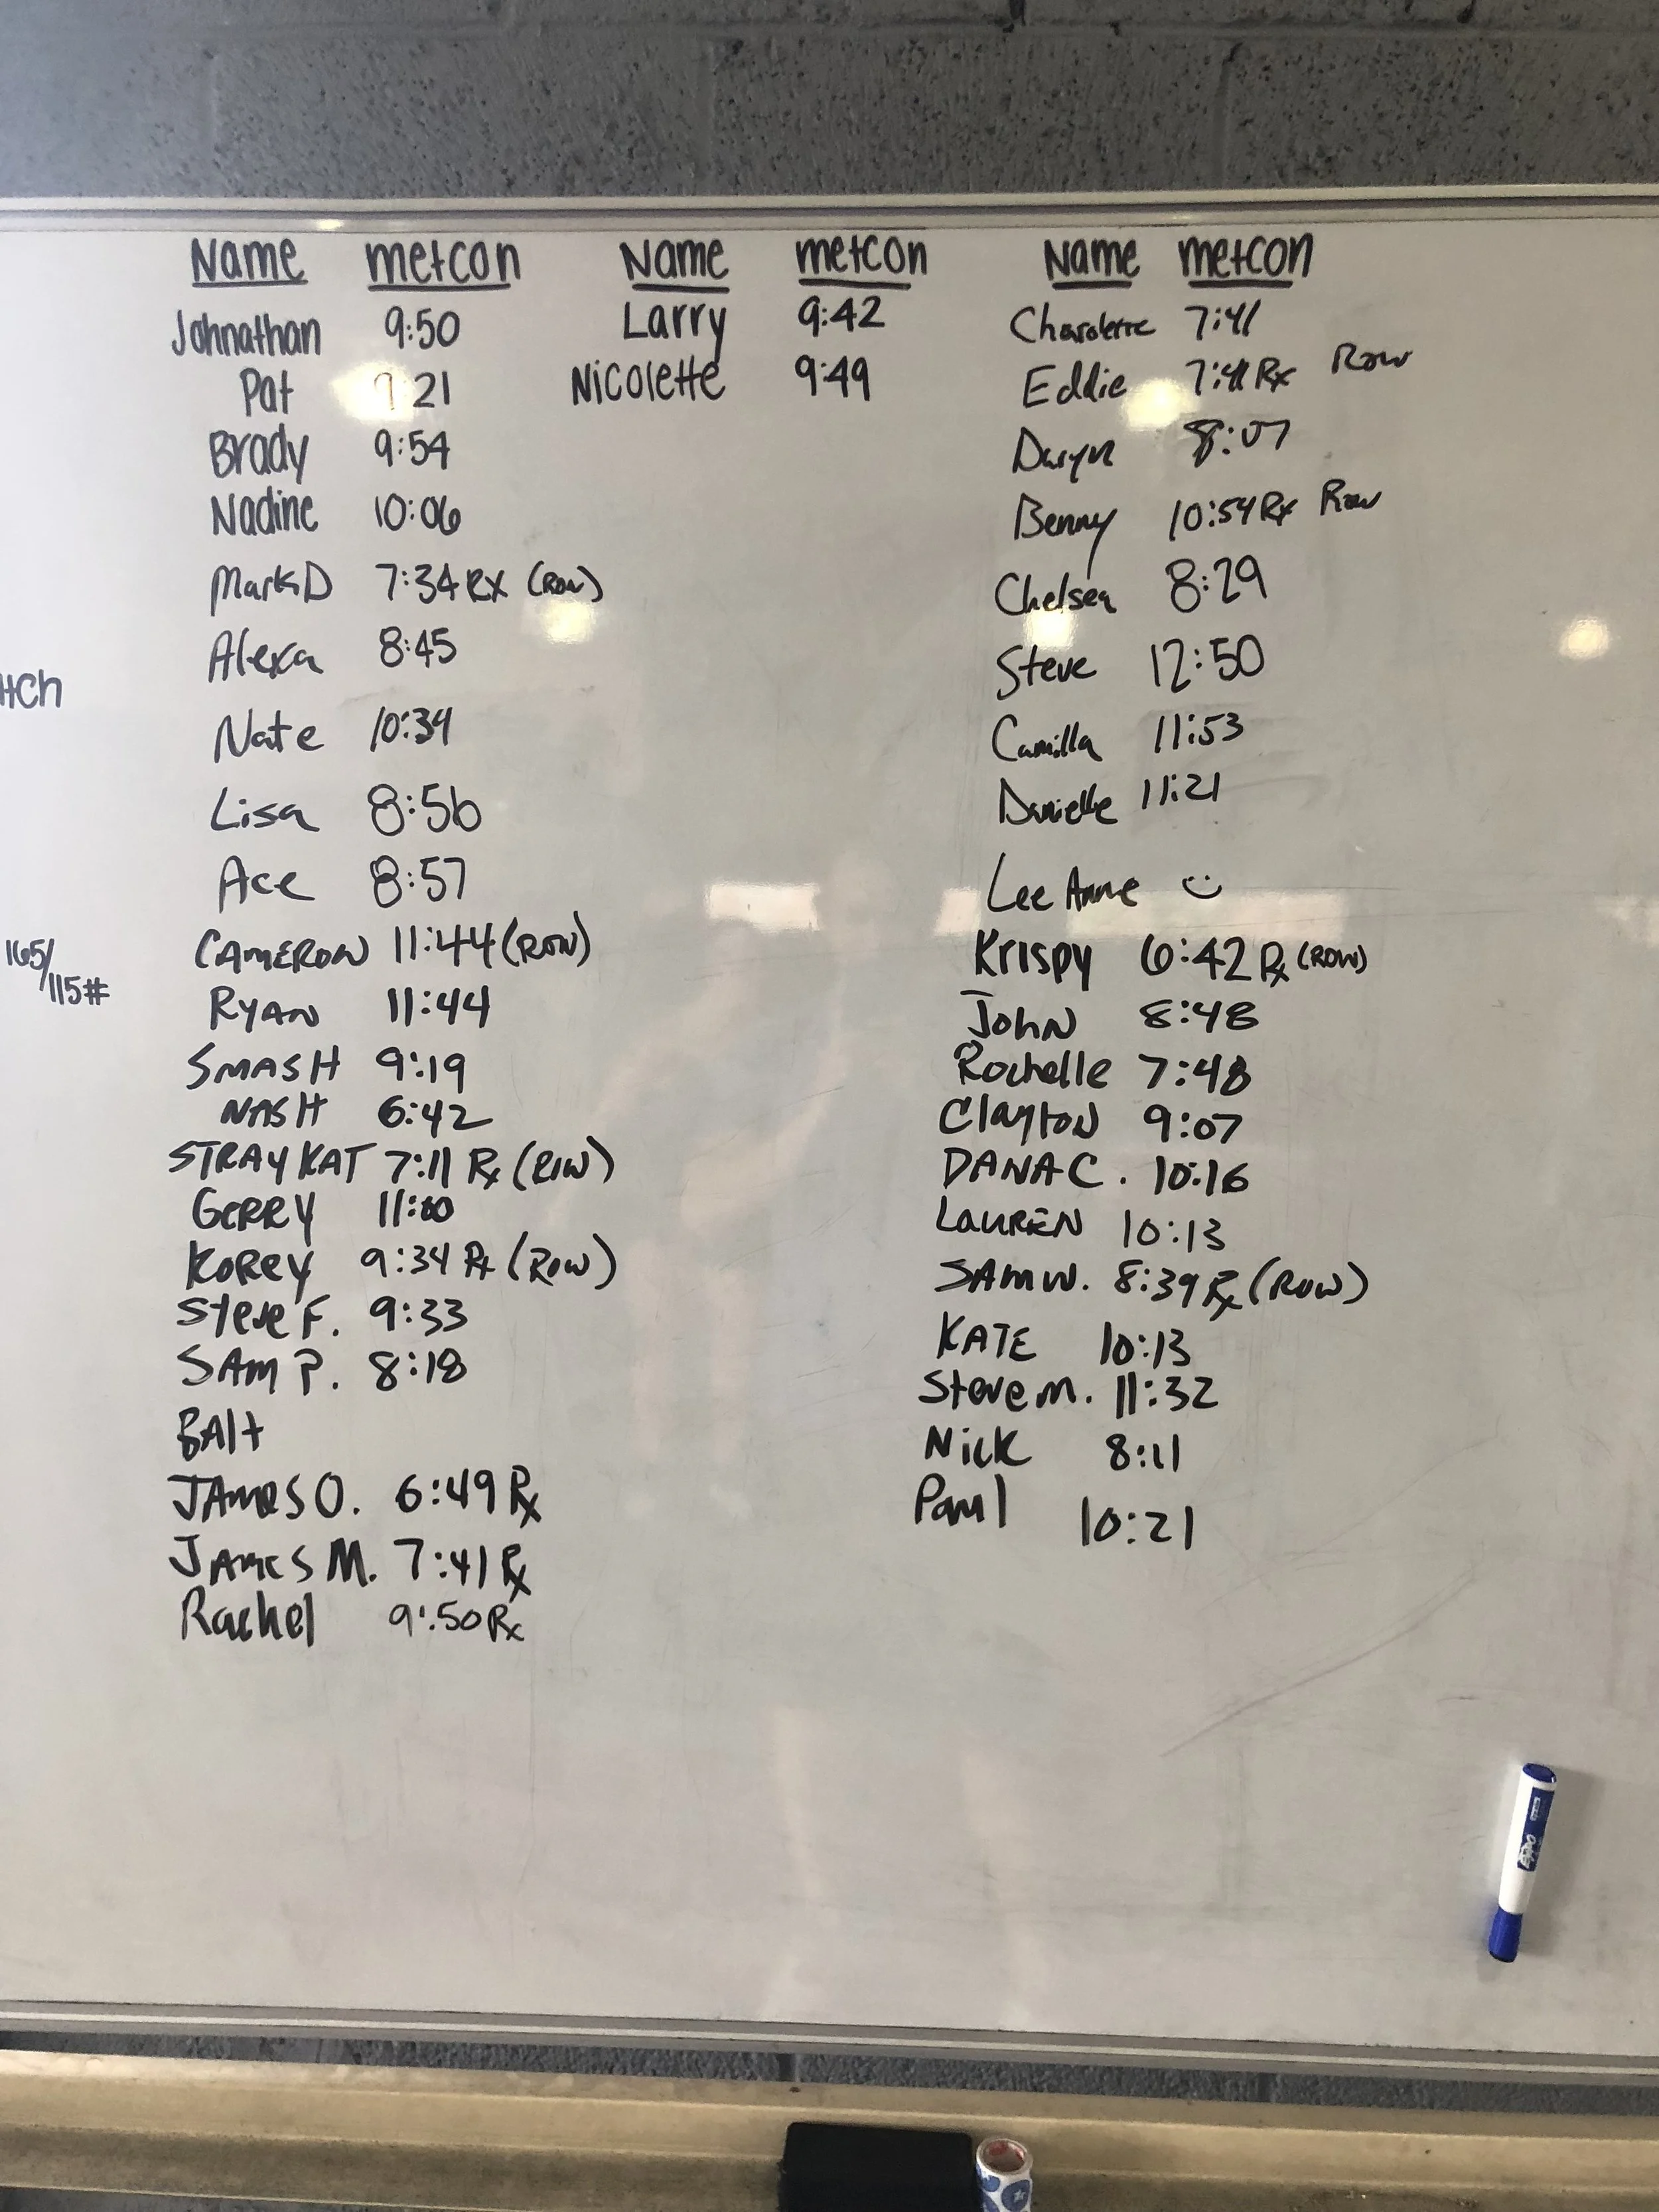 Name metcon
Johnathan 9:50
Pat 9:21
Brady 9:54
Nadine 10:06
Mark D 7:34 RX (Row)
Alexa 8:45
Nate 10:34
Lisa 8:56
Ace 8:57
CAMERON 11:44 (ROW)
RYAN 11:44
SMASH 9:19
NASH 6:42
STRAY KAT 7:11 Rx (ROW)
GERRY
KOREY 9:34 Rx (ROW)
Steve F. 9:33
SAM P. 8:18
BAlt
JAMES O. 6:49 Rx
JAMES M. 7:41 Rx
Rachel 9:50 Rx
Name metcon
Larry 9:42
Nicolette 9:49
Name metcon
Charolette 7:41
Eddie 7:41 Rx Row
Daryn 8:07
Benny 10:54 Rx Row
Chelsea 8:29
Steve 12:50
Camilla 11:53
Danielle 11:21
Lee Anne
Krispy 6:42 Rx (ROW)
John 8:48
Rochelle 7:48
Clayton 9:07
DANA C. 10:16
LAUREN 10:13
SAM W. 8:39 Rx (ROW)
KATE 10:13
Steve M. 11:32
Nick 8:11
Paul 10:21
165/
115#
EXPO